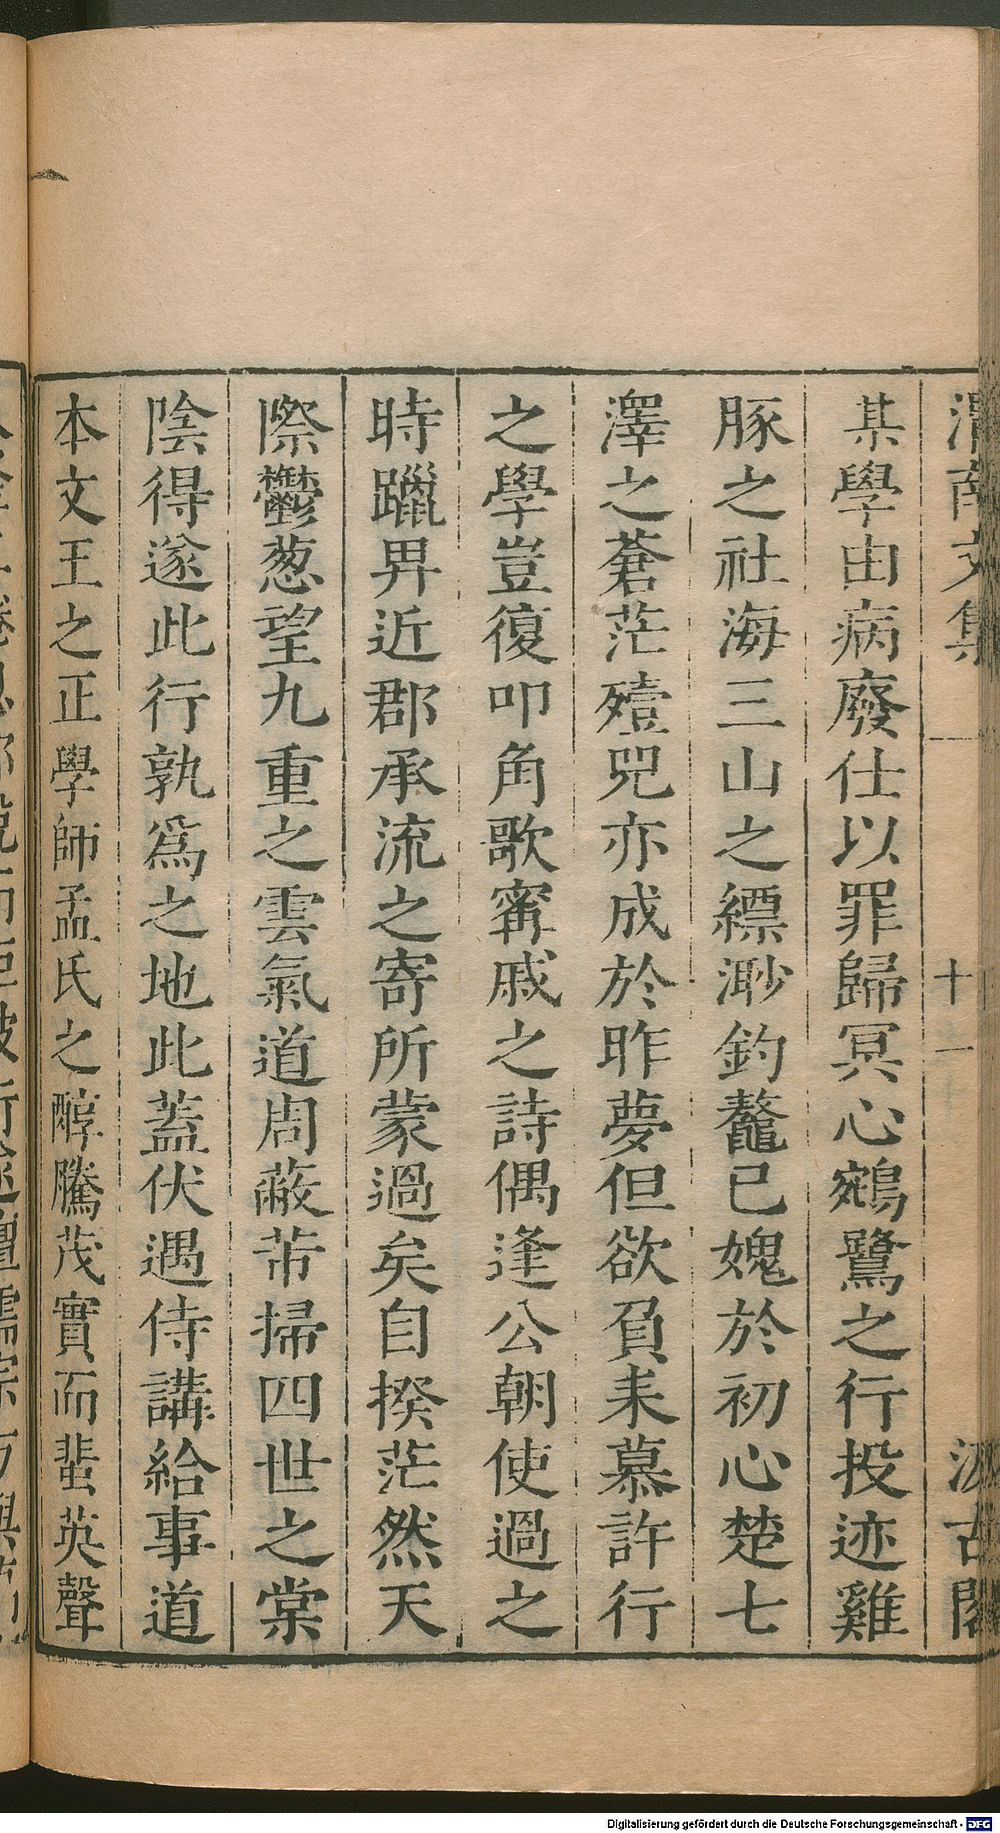 渭南文集 十一 汲古閣
某學由病廢仕以罪歸冥心鵷鷺之行投迹雞
豚之社海三山之縹渺釣鼇已媿於初心楚七
澤之蒼茫殪兕亦成於昨夢但欲負耒慕許行
之學豈復叩角歌甯戚之詩偶逢公朝使過之
時躐畀近郡承流之寄所蒙過矣自揆茫然天
際鬱葱望九重之雲氣道周蔽芾掃四世之棠
陰得遂此行孰爲之地此蓋伏遇侍講給事道
本文王之正學師孟氏之醇騰茂實而蜚英聲
Digitalisierung gefördert durch die Deutsche Forschungsgemeinschaft - DFG